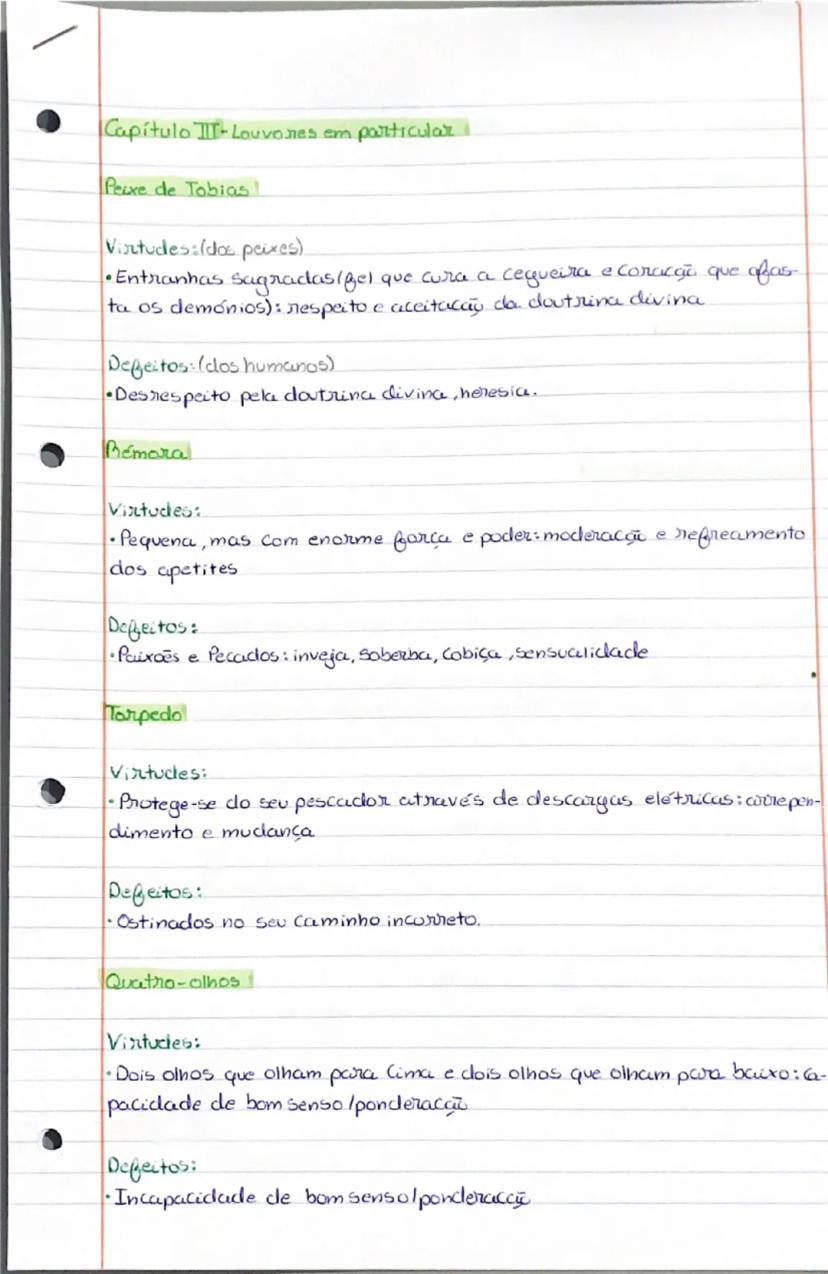 Capítulo III - Louvores em particular
Peixe de Tobias
Virtudes: (dos peixes)
• Entranhas sagradas (fel que cura a cegueira e coração que afas-
ta os demónios): respeito e aceitação da doutrina divina
Defeitos: (dos humanos)
• Desrespeito pela doutrina divina, heresia.
Rémora
Virtudes:
• Pequena, mas com enorme força e poder: moderação e refreamento
dos apetites
Defeitos:
• Paixões e Pecados: inveja, soberba, cobiça, sensualidade
Torpedo
Virtudes:
• Protege-se do seu pescador através de descargas elétricas: arrepen-
dimento e mudança
Defeitos:
• Ostinados no seu caminho incorreto.
Quatro-olhos
Virtudes:
• Dois olhos que olham para cima e dois olhos que olham para baixo: ca-
pacidade de bom senso/ponderação
Defeitos:
• Incapacidade de bom senso/ponderação